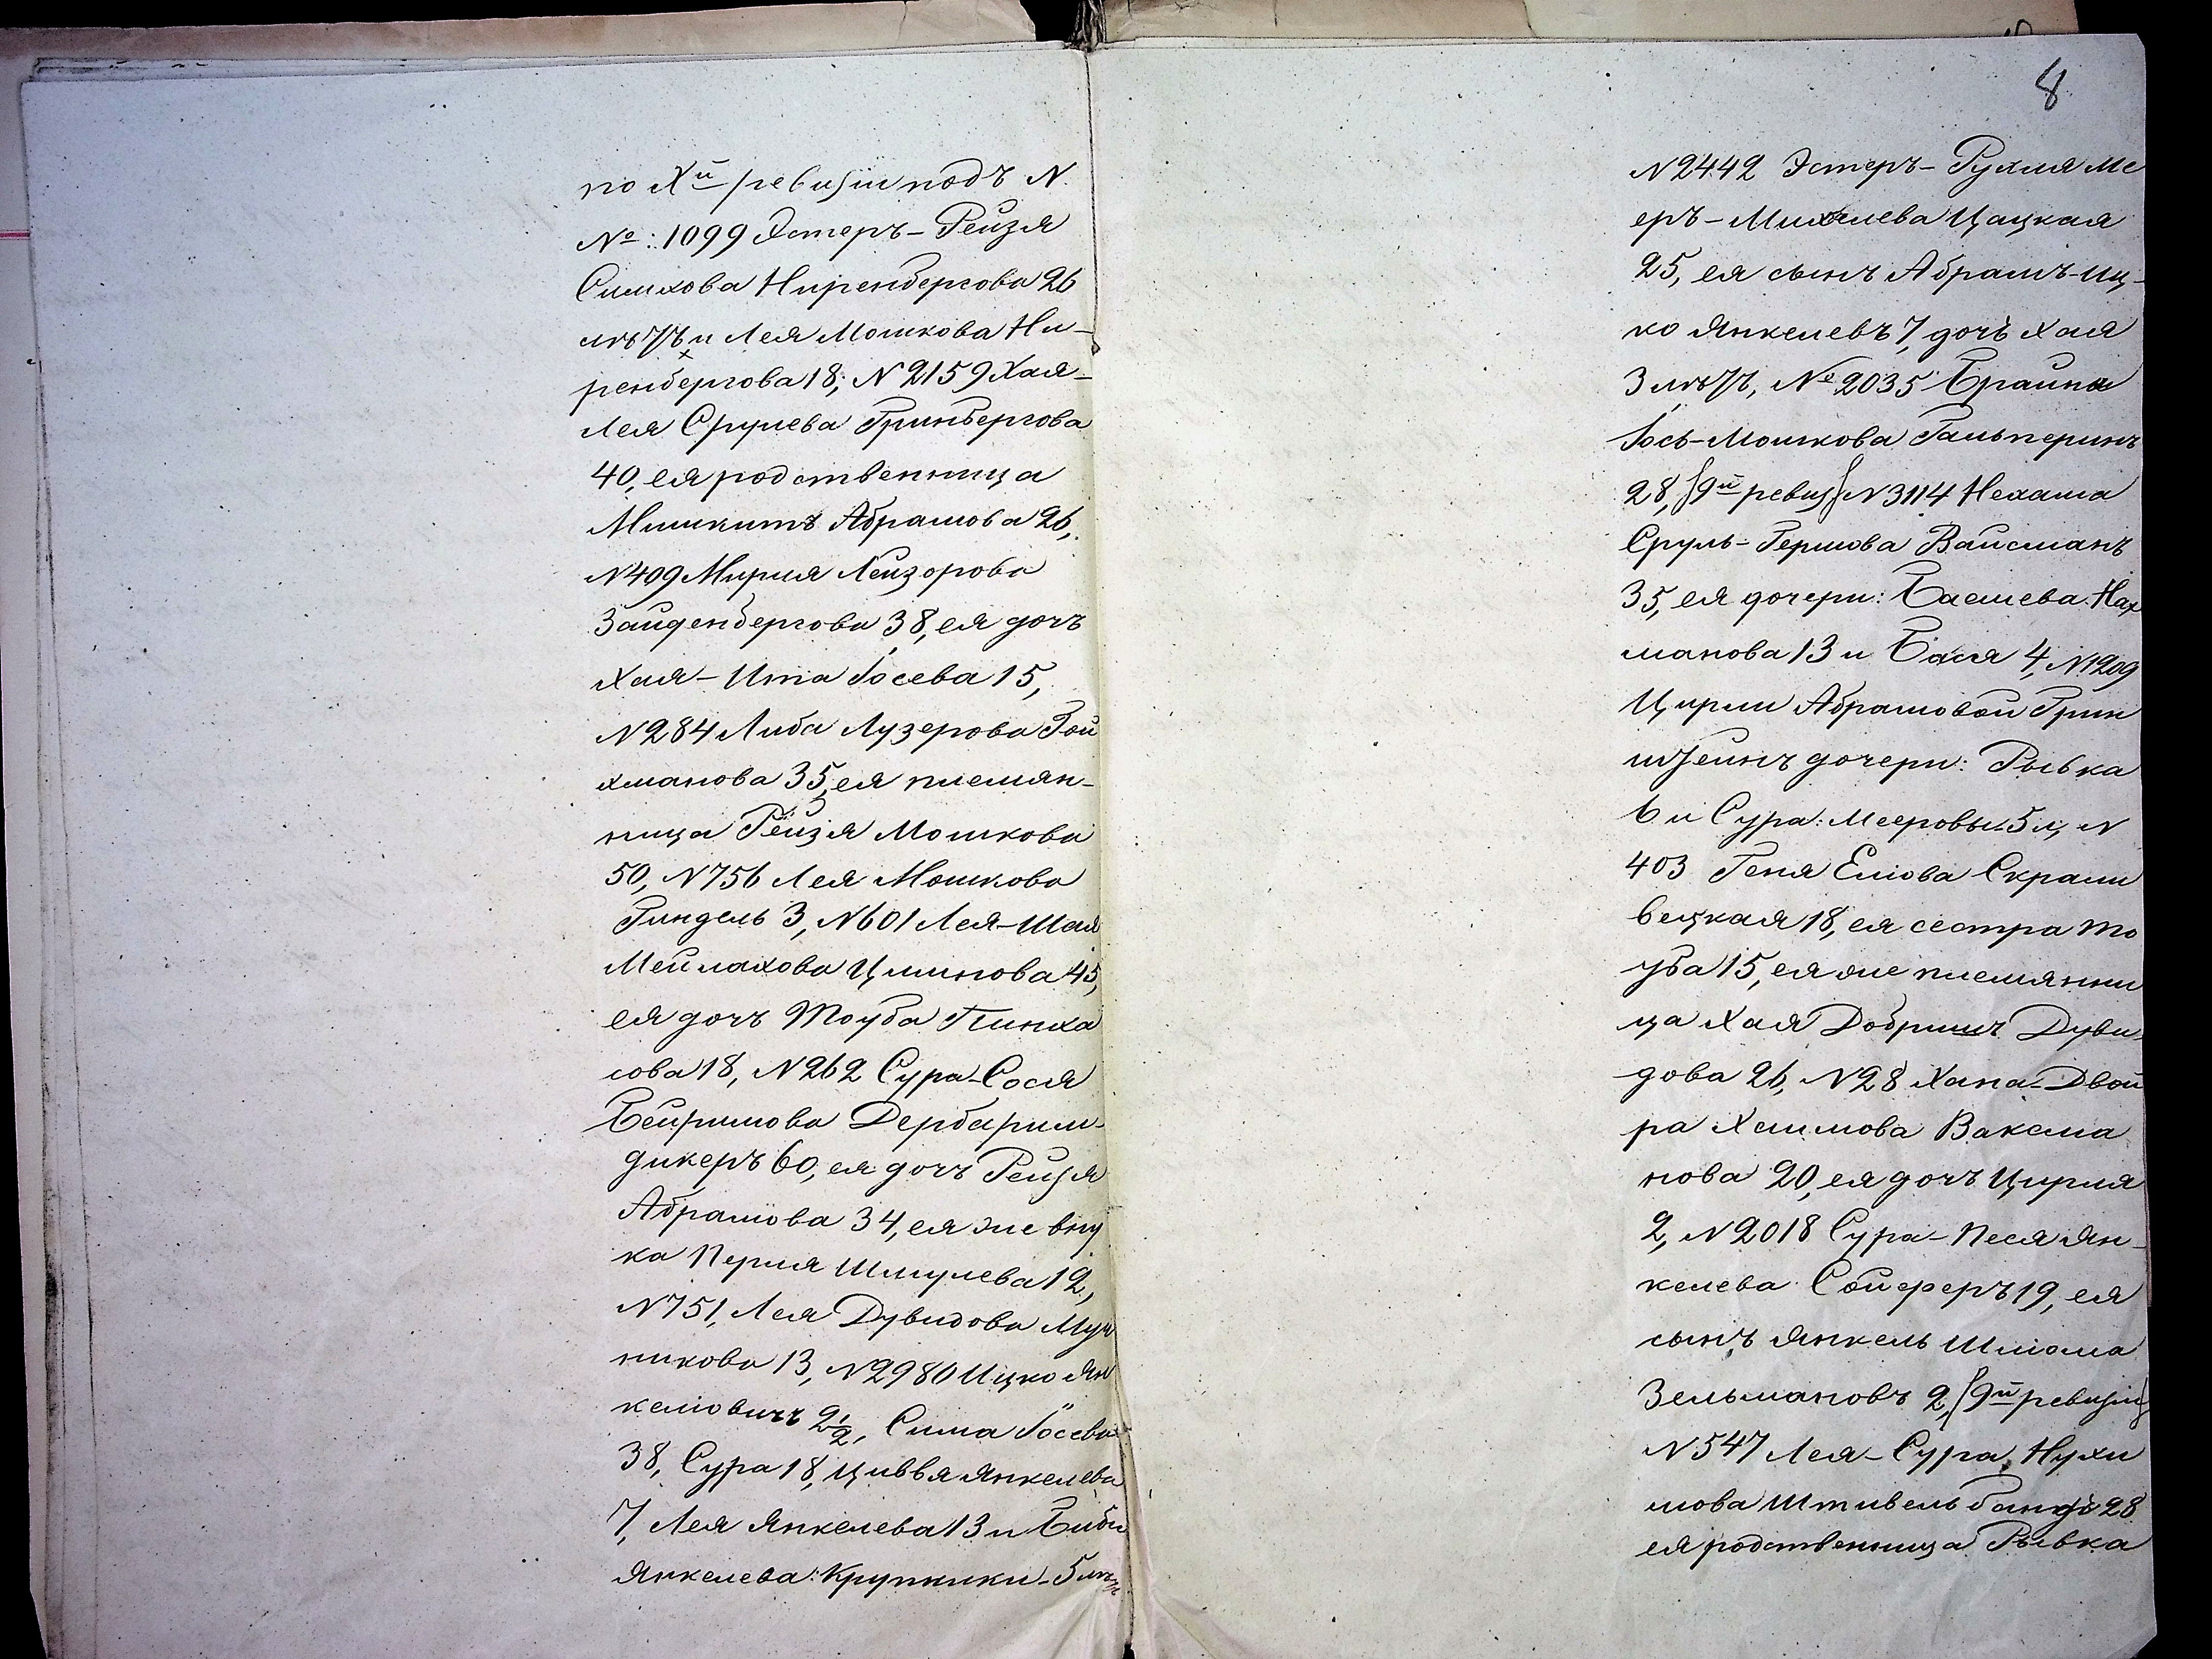 по Xй ревизіи подъ N.
№: 1099 Эстеръ-Рейзя
Симхова Ниренбергова 26
лѣтъ и Лея Мошкова Ни-
ренбергова 18; N 2159 Хая-
Лея Срулева Гринбергова
40, ея родственница
Мишкитъ Абрамова 26,
N 409 Мирля Лейзорова
Зайденбергова 38, ея дочь
Хая-Ита Іосева 15,
N 284 Либа Лузерова Гой
хманова 35, ея племян-
ница Рейзя Мошкова
50, N 756 Лея Мошкова
Гиндель 3, N 601 Лея-Шая
Мейлахова Цминова 45,
ея дочь Тоуба Пинха
сова 18, N 262 Сура-Сося
Бейришова Дербарим-
дикеръ 60, ея дочь Рейзя
Абрамова 34, ея же вну
ка Перля Шмулева 12,
N 751, Лея Дувидова Муч
никова 13, N 2980 Ицко Ян
келіовичъ 2½, Сима Іосева
38, Сура 18, Цивья Янкелева
7, Лея Янкелева 13 и Биби
Янкелева: Крупники-5 лѣтъ
8
N 2442 Эстеръ-Рухля Ме
еръ-Михелева Цацкая
25, ея сынъ Абрамъ-Иц-
ко Янкелевъ 7, дочь Хая
3 лѣтъ, № 2035 Брайна
Іось-Мошкова Гальперинъ
28, {9й ревиз} N 3114 Нехама
Сруль-Гершова Вайсманъ
35, ея дочери: Басшева Нах
манова 13 и Бася 4, N 1209
Цирли Абрамовой Грин
штейнъ дочери: Рывка
6 и Сура: Мееровы 5 л, N
403 Геня Еліова Скрали
вецкая 18, ея сестра То
уба 15, ея же племянни
ца Хая Добришъ Дуви-
дова 26, N 28 Хана-Двой
ра Хаимова Ваксма
нова 20, ея дочь Цирля
2, N 2018 Сура-Песя Ян-
келева Сойферъ 19, ея
сынъ Янкель Шліома
Зельмановъ 2, {9й ревизіи}
N 547 Лея-Сура Нухи
мова Штивельбандъ 28
ея родственница Рывка